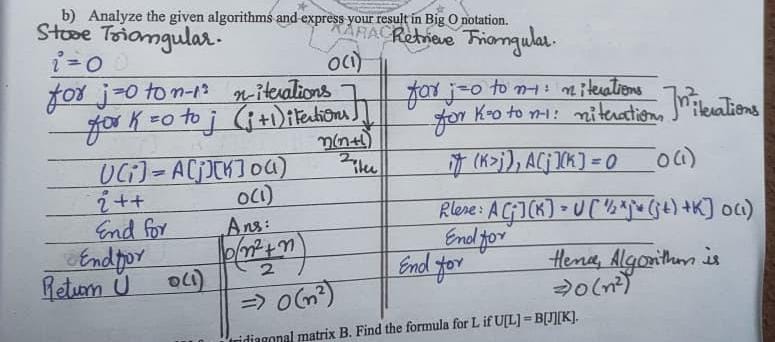 b) Analyze the given algorithms and express your result in Big O notation.
Store Triangular.
i = 0 O(1)
for j=0 to n-1: n-iterations
for K=0 to j (j+1) itertions
n(n+1)
2 iter
U[i] = A[j][K] O(1)
i++ O(1)
End for
Endfor
Return U O(1)
Ans:
O(n²+n
2)
⇒ O(n²)
KARAC
Retrieve Triangular.
for j=0 to n-1: n iterations
for K=0 to n-1: n iterations
n² iterations
if (K>j), A[j][K] = 0 O(1)
Else: A[j][K] = U[½*j*(j+1)+K] O(1)
End for
End for
Hence, Algorithm is
⇒ O(n²)
tridiagonal matrix B. Find the formula for L if U[L] = B[J][K].